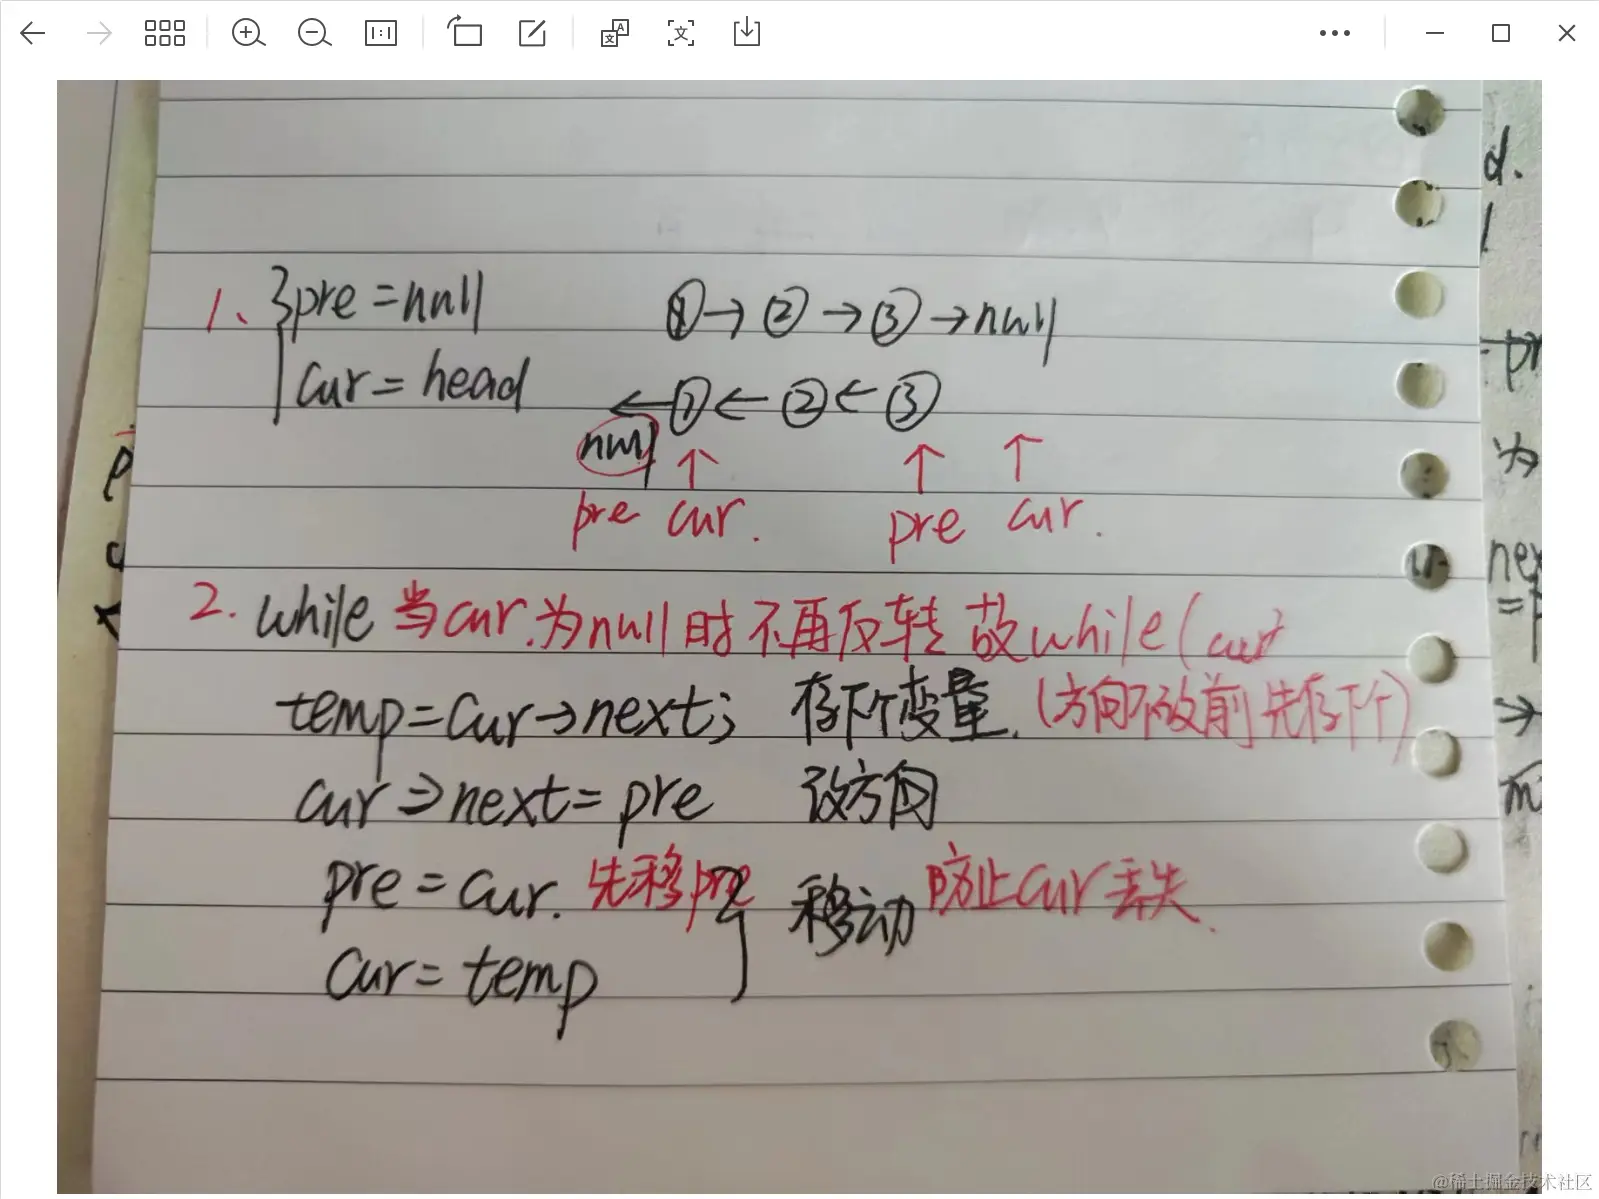 1:1
1、 pre = null
① → ② → ③ → null
cur = head
← ① ← ② ← ③
null ↑ ↑ ↑
pre cur. pre cur.
2. while 当cur.为null时不再反转 故while(cur
temp = cur→next; 存下个变量. (方向不改前先存下个)
cur⇒next = pre 改方向
pre = cur. 先移pre 移动 防止cur丢失.
cur = temp
d.
为
@稀土掘金技术社区